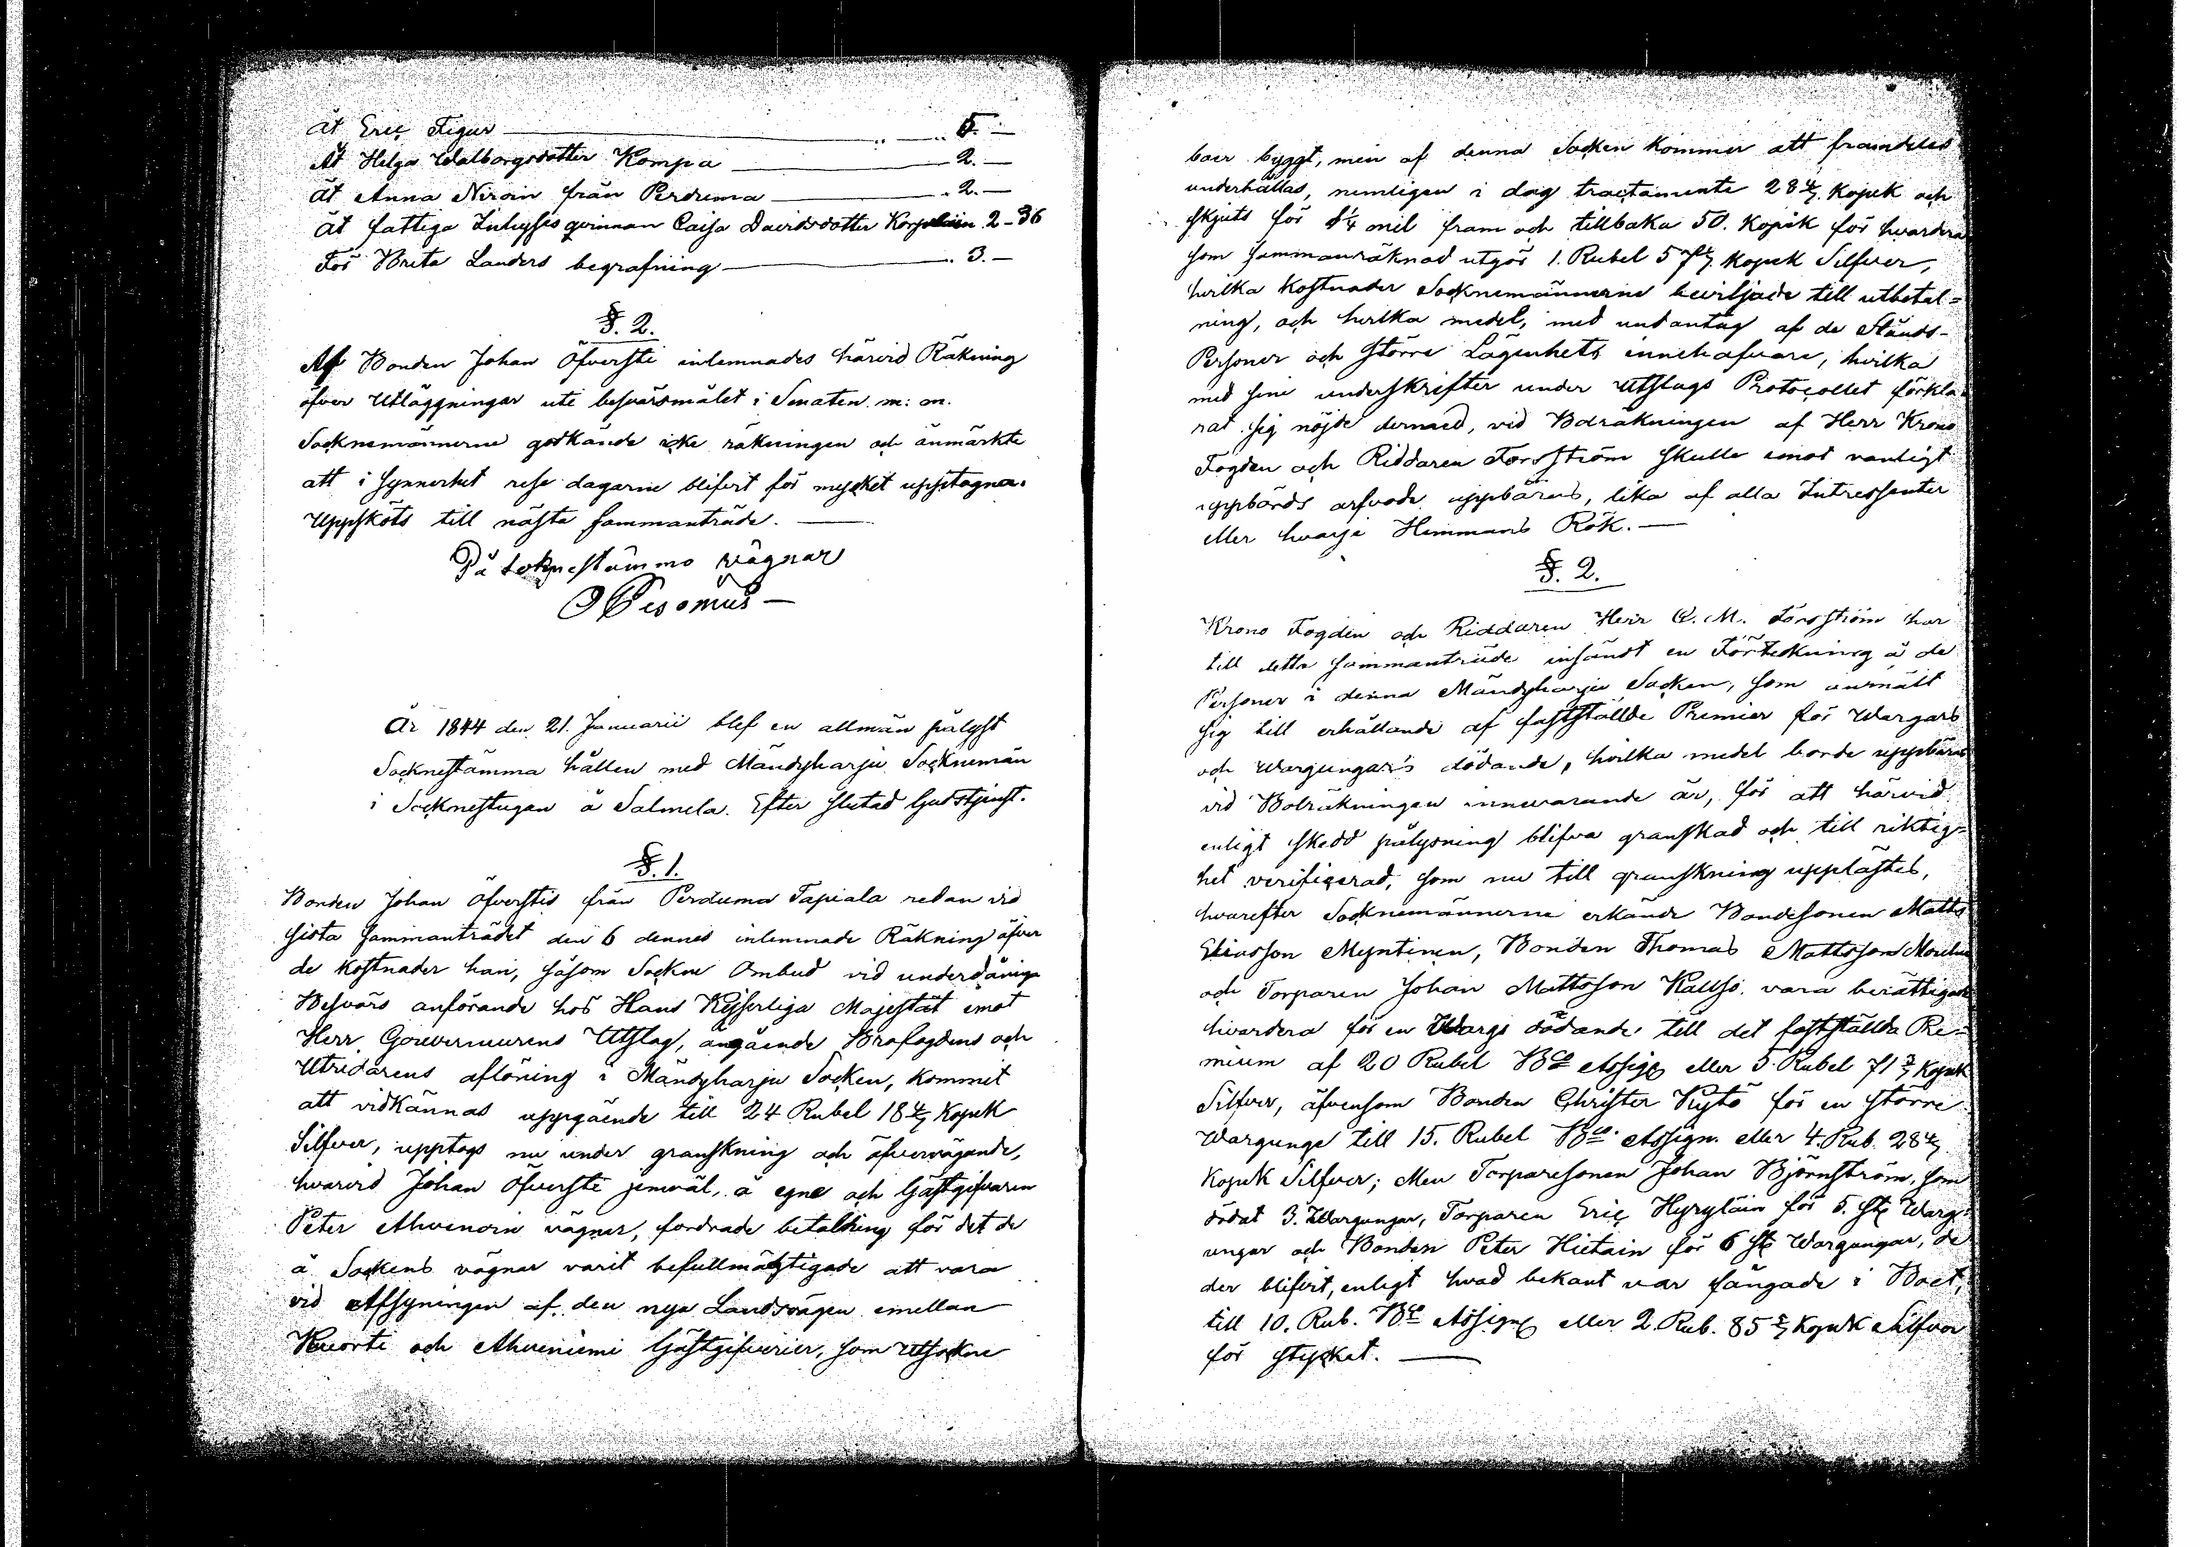 Åt Eric Figur " " 5. —
Åt Helga Walborgsdotter Kompa " 2. —
Åt Anna Niroin från Perduma " 2. —
Åt fattiga Inhysesqvinnan Caisa Davidsdotter Korpelain 2 - 36
För Brita Landers begrafning " 3. —
§. 2.
Af Bonden Johan Öfversti inlemnades härvid Räkning
öfver Utläggningar uti besvärsmålet i Senaten m: m.
Socknemännerne godkände icke räkningen och anmärkte
att i synnerhet rese dagarne blifvit för mycket upptagna.
Uppsköts till nästa sammanträde. —
På Soknestämmo vägnar
År 1844 den 21. Januarii blef en allmän pålyst
Socknestämma hållen med Mändyharju Socknemän
i Socknestugan å Salmela. Efter slutad Gudstjenst.
§. 1.
Bonden Johan Öfverstis från Perduma Tapiala redan vid
sista sammanträdet den 6 dennes inlemnade Räkning öfver
de kostnader han, såsom Sockne Ombud vid underdånige
Besvärs anförande hos Hans Kejserliga Majestät emot
Herr Gouverneurens Utslag, angående Brofogdens och
Utridarens aflöning i Mändyharju Socken, kommit
att vidkännas uppgående till 24 Rubel 18 4/7 Kopek
Silfver, upptogs nu under granskning och öfvervägande,
hvarvid Johan Öfversti jemväl, å egne och Gästgifvaren
Peter Ahvenoin vägnar, fordrade betalning för det de
å Sockens vägnar varit befullmägtigade att vara
vid Afsyningen af den nya Landsvägen emellan
Kuorti och Ahveniemi Gästgifverier, som Utsockne
boer byggt, men af denna Socken kommer att framdeles
underhållas, nemligen i dag tractamente 28 4/7 Kopek och
skjuts för 1/4 mil fram och tillbaka 50. Kopek för hvardera
som sammanräknad utgör 1. Rubel 57 1/7 Kopek Silfver,
hvilka kostnader Socknemännerne beviljade till utbetal=
ning, och hvilka medel, med undantag af de Stånds-
Personer och större Lägenhets innehafvare, hvilka
med sine underskrifter under Utslags Protocollet förkla=
rat sig nöjde dermed, vid Boräkningen af Herr Krono
Fogden och Riddaren Forsström skulle emot vanligt
uppbörds arfvode uppbäras, lika af alla Intressenter
eller hvarje Hemmans Rök. —
§. 2.
Krono Fogden och Riddaren Herr C. M. Forsström har
till detta sammanträde insändt en Förteckning å de
Personer i denna Mändyharju Socken, som anmält
sig till erhållande af fastställde Premier för Wargars
och Wargungar's dödande, hvilka medel borde uppbäras
vid Boräkningen innevarande år, för att härvid
enligt skedd pålysning blifva granskad och till riktig=
het verificerad, som nu till granskning upplästes,
hvarefter Socknemännerne erkände Bondesonen Matts
Eliasson Myntinen, Bonden Thomas Mattsson
och Torparen Johan Mattsson Kallso vara berättigade
hvardera för en Wargs dödande till det fastställda Pre=
mium af 20 Rubel Bco Assign eller 5. Rubel 71 3/7 Kopek
Silfver, äfvensom Bonden Christer Kytö för en större
Wargunge till 15. Rubel Bco Assign. eller 4. Rub. 28 4/7
Kopek Silfver; Men Torparesonen Johan Björnström, som
dödat 3. Wargungar, Torparen Eric Hyryläin för 5. st: Warg=
ungar och Bonden Peter Hietain för 6 st: Wargungar, de
der blifvit, enligt hvad bekant var fångade i Boet,
till 10. Rub. Bco Assign eller 2. Rub. 85 5/7 Kopek Silfver
för stycket. —